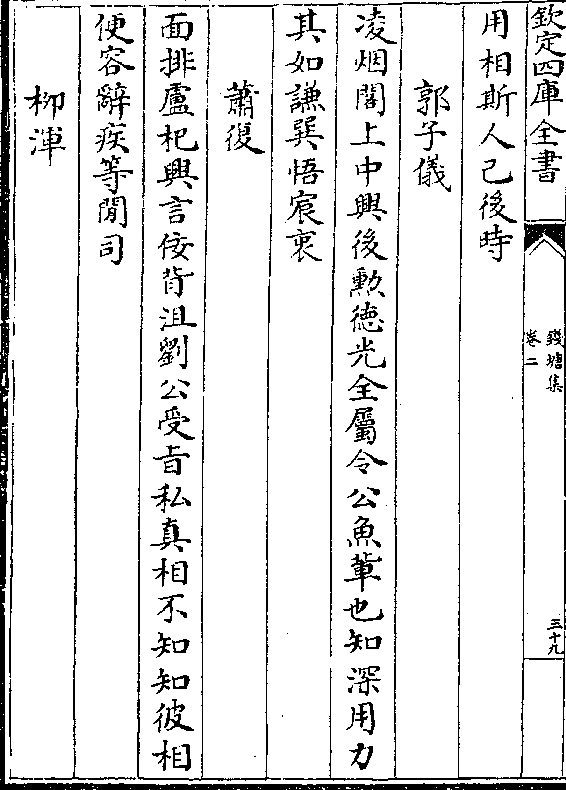 欽定四庫全書
錢塘集
卷二
三十九
用相斯人己後時
郭子儀
凌烟閣上中興後勲徳光全屬令公魚軰也知深用力
其如謙巽悟宸衷
蕭復
面排盧杞興言佞背沮劉公受㫖私真相不知知彼相
便容辭疾等閒司
栁渾